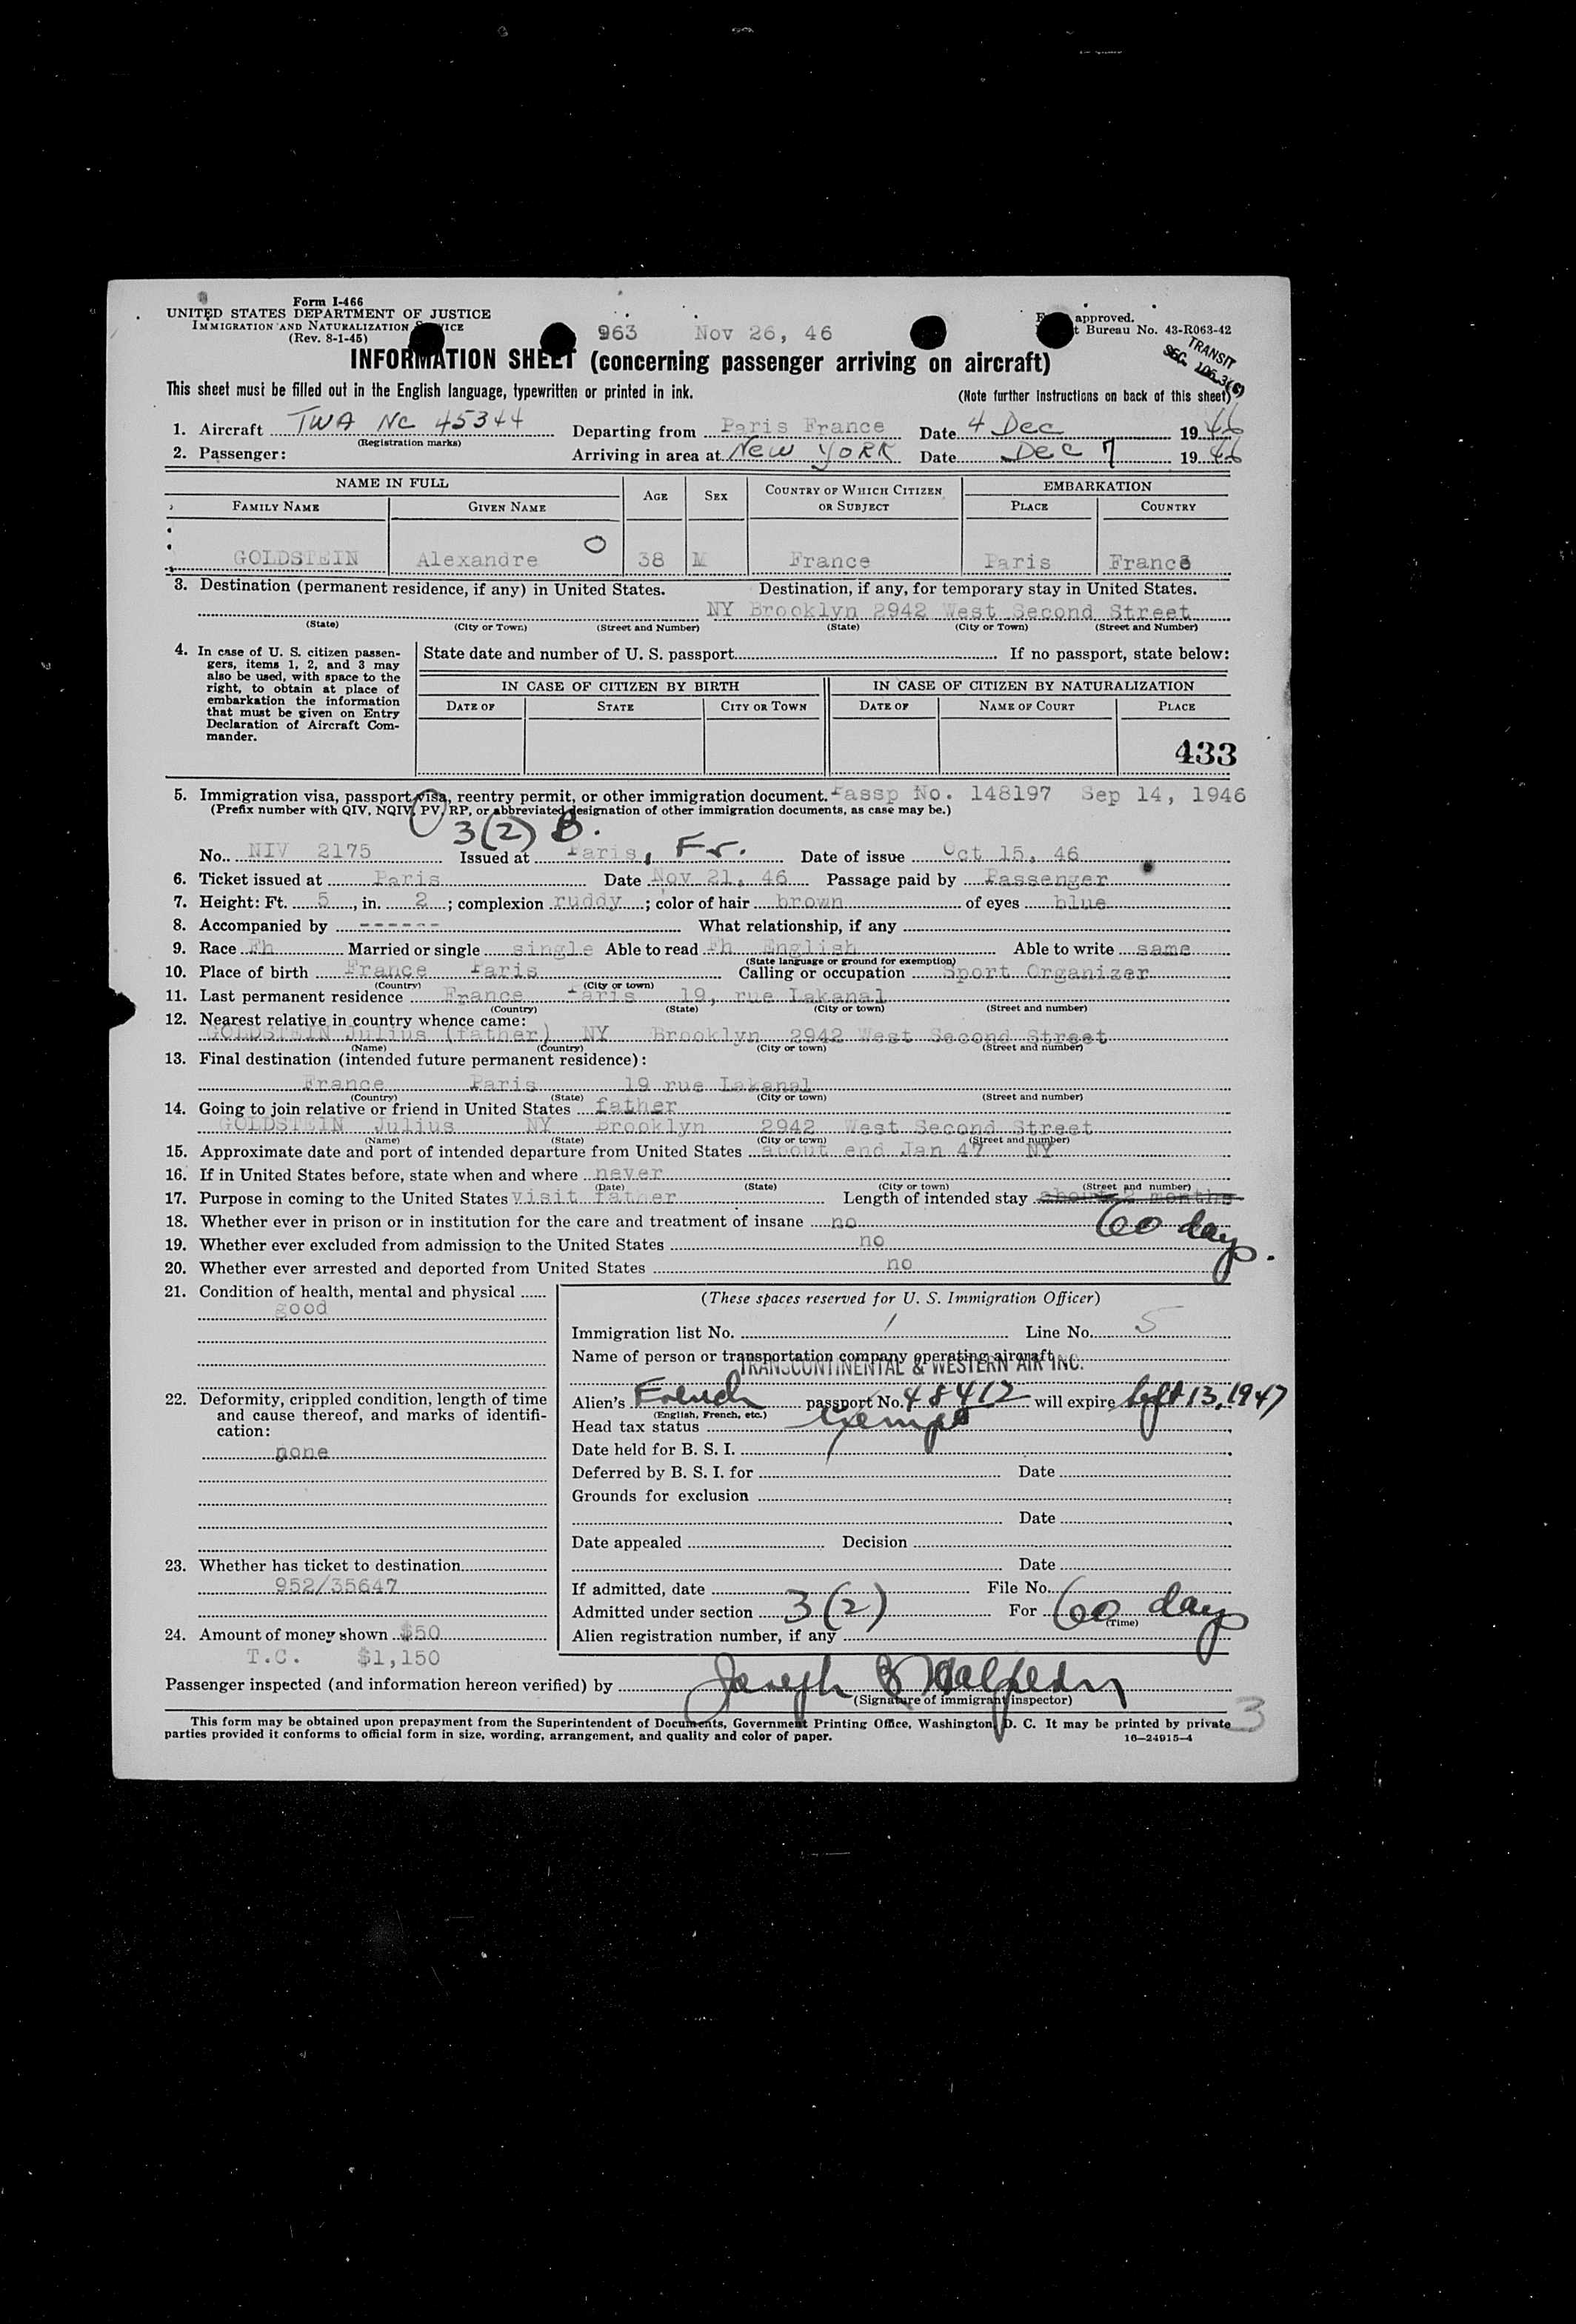 Form I-466
UNITED STATES DEPARTMENT OF JUSTICE
IMMIGRATION AND NATURALIZATION
(Rev. 8-1-45)
963 Nov 26, 46
approved.
Bureau No. 43-R063-42
TRANSIT
SEC.
INFORMATION SHEET (concerning passenger arriving on aircraft)
This sheet must be filled out in the English language, typewritten or printed in ink. (Note further instructions on back of this sheet)
1. Aircraft TWA NC 45344 Departing from Paris France Date 4 Dec 1946
(Registration marks)
2. Passenger: Arriving in area at New York Date Dec 7 1946
NAME IN FULL AGE SEX COUNTRY OF WHICH CITIZEN OR SUBJECT EMBARKATION
FAMILY NAME GIVEN NAME PLACE COUNTRY
GOLDSTEIN Alexandre 38 M France Paris France
3. Destination (permanent residence, if any) in United States. Destination, if any, for temporary stay in United States.
NY Brooklyn 2942 West Second Street
(State) (City or Town) (Street and Number) (State) (City or Town) (Street and Number)
4. In case of U. S. citizen passengers, items 1, 2, and 3 may also be used, with space to the right, to obtain at place of embarkation the information that must be given on Entry Declaration of Aircraft Commander.
State date and number of U. S. passport If no passport, state below:
IN CASE OF CITIZEN BY BIRTH IN CASE OF CITIZEN BY NATURALIZATION
DATE OF STATE CITY OR TOWN DATE OF NAME OF COURT PLACE
433
5. Immigration visa, passport visa, reentry permit, or other immigration document. Passp No. 148197 Sep 14, 1946
(Prefix number with QIV, NQIV, PV, RP, or abbreviated designation of other immigration documents, as case may be.)
3(2) B.
No. NIV 2175 Issued at Paris, Fr. Date of issue Oct 15, 46
6. Ticket issued at Paris Date Nov 21, 46 Passage paid by Passenger
7. Height: Ft. 5, in. 2; complexion ruddy; color of hair brown of eyes blue
8. Accompanied by ------ What relationship, if any
9. Race Fh Married or single single Able to read Fh English Able to write same
(State language or ground for exemption)
10. Place of birth France Paris Calling or occupation Sport Organizer
(Country) (City or town)
11. Last permanent residence France Paris 19, rue Lakanal
(Country) (State) (City or town) (Street and number)
12. Nearest relative in country whence came:
GOLDSTEIN Julius (father) NY Brooklyn 2942 West Second Street
(Name) (Country) (City or town) (Street and number)
13. Final destination (intended future permanent residence):
France Paris 19 rue Lakanal
(Country) (State) (City or town) (Street and number)
14. Going to join relative or friend in United States father
GOLDSTEIN Julius NY Brooklyn 2942 West Second Street
(Name) (State) (City or town) (Street and number)
15. Approximate date and port of intended departure from United States about end Jan 47 NY
16. If in United States before, state when and where never
(Date) (State) (City or town) (Street and number)
17. Purpose in coming to the United States visit father Length of intended stay about 2 months
60 days.
18. Whether ever in prison or in institution for the care and treatment of insane no
19. Whether ever excluded from admission to the United States no
20. Whether ever arrested and deported from United States no
21. Condition of health, mental and physical
good
(These spaces reserved for U. S. Immigration Officer)
Immigration list No. 1 Line No. 5
Name of person or transportation company operating aircraft
TRANSCONTINENTAL & WESTERN AIR INC.
22. Deformity, crippled condition, length of time and cause thereof, and marks of identification:
none
Alien's French passport No. 48412 will expire Sept 13, 1947
(English, French, etc.)
Head tax status Exempt
Date held for B. S. I.
Deferred by B. S. I. for Date
Grounds for exclusion
Date
Date appealed Decision
Date
23. Whether has ticket to destination
952/35647
If admitted, date File No.
Admitted under section 3(2) For 60 days
(Time)
24. Amount of money shown $50
T.C. $1,150
Alien registration number, if any
Passenger inspected (and information hereon verified) by Joseph B Halpern
(Signature of immigrant inspector)
3
This form may be obtained upon prepayment from the Superintendent of Documents, Government Printing Office, Washington, D. C. It may be printed by private
parties provided it conforms to official form in size, wording, arrangement, and quality and color of paper. 16—24915-4